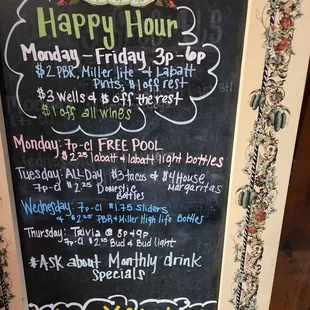 Happy Hour
Monday - Friday 3p-6p
$2 PBR, Miller lite & Labatt
Pints, $1 off rest
$3 Wells & $ off the rest
$1 off all wines
Monday: 7p-cl FREE POOL
$2.25 labatt & labatt light bottles
Tuesday: ALL DAY $3 tacos & $4 House
7p-cl $2.25 Domestic Margaritas
Bottles
Wednesday: 7p-cl $1.75 Sliders
& $2.25 PBR & Miller High life Bottles
Thursday: Trivia @ 8p & 9p
7p-cl $2.25 Bud & Bud light
*ASK about Monthly drink
Specials